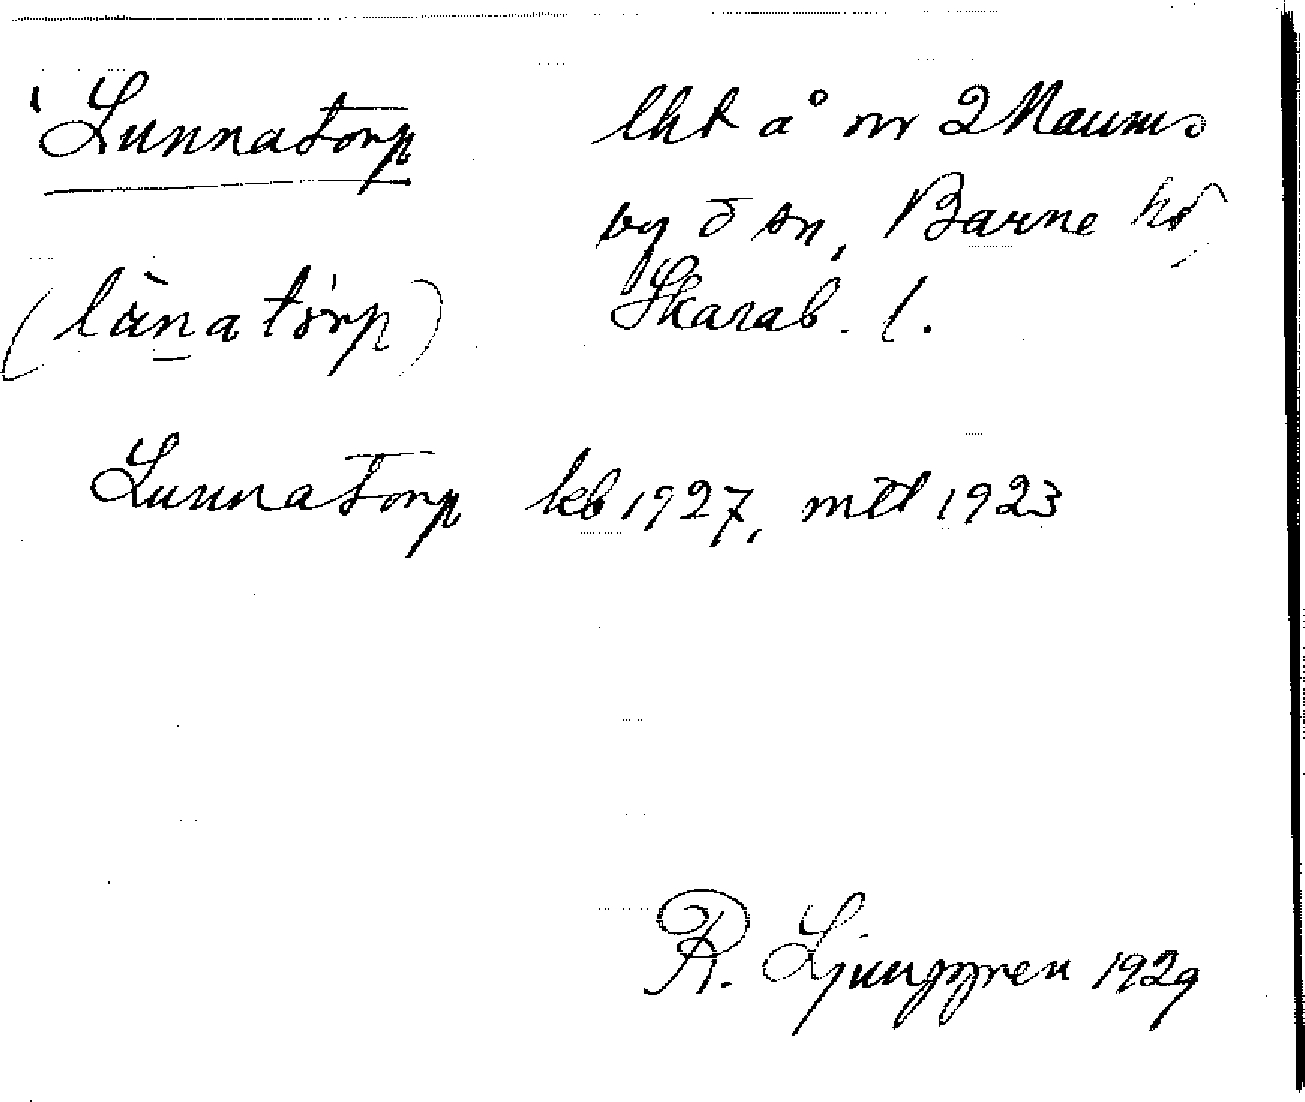 Lunnatorp
lht å nr 2 Naums
by o sn, Barne hd
(lànatòrp)
Skarab. l.
Lunnatorp kb 1927, mtl 1923
R. Ljunggren 1929